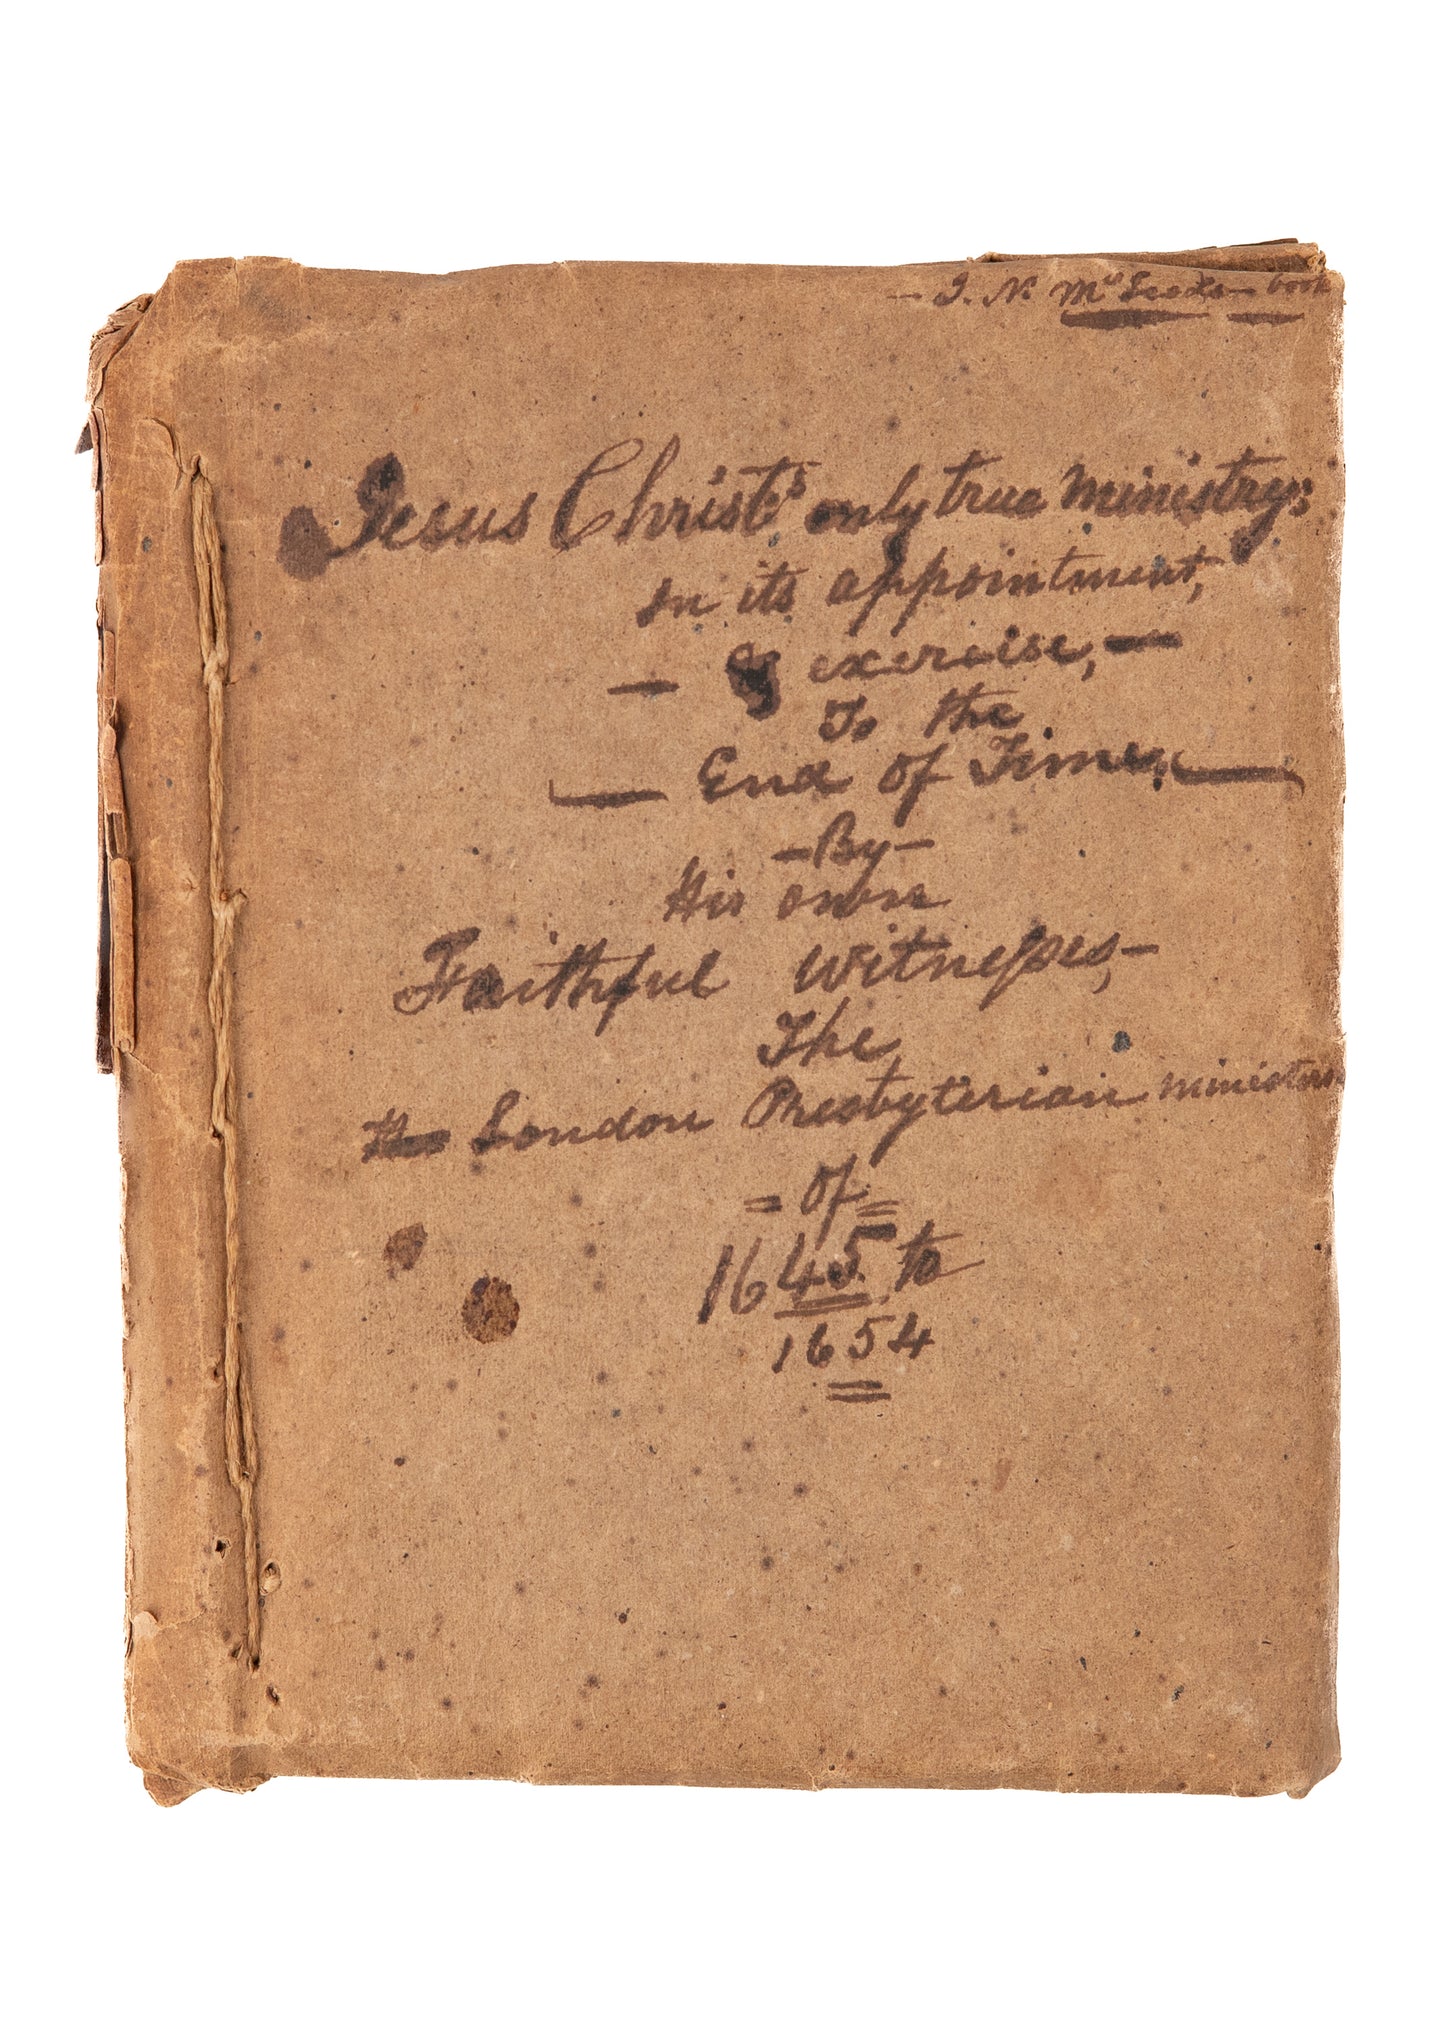 – J. N. McLeod's – book
Jesus Christ's only true ministry;
in its appointment,
— & exercise, —
To the
— End of Time, —
– By –
His own
Faithful witnesses, –
The
London Presbyterian ministers
= of =
1645 to
1654